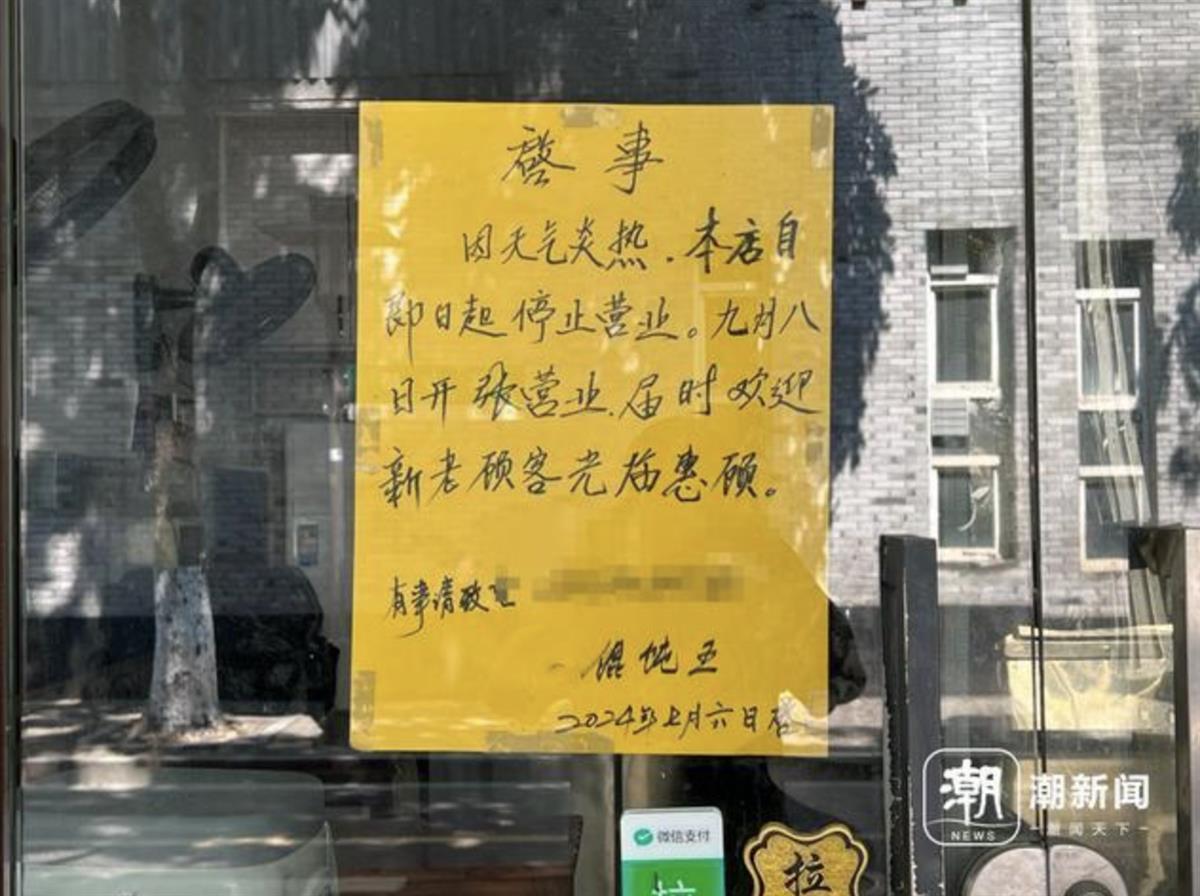 启事
因天气炎热.本店自
即日起停止营业。九月八
日开张营业.届时欢迎
新老顾客光临惠顾。
有事请拨
馄饨王
2024年七月六日启
微信支付
拉
潮
NEWS
潮新闻